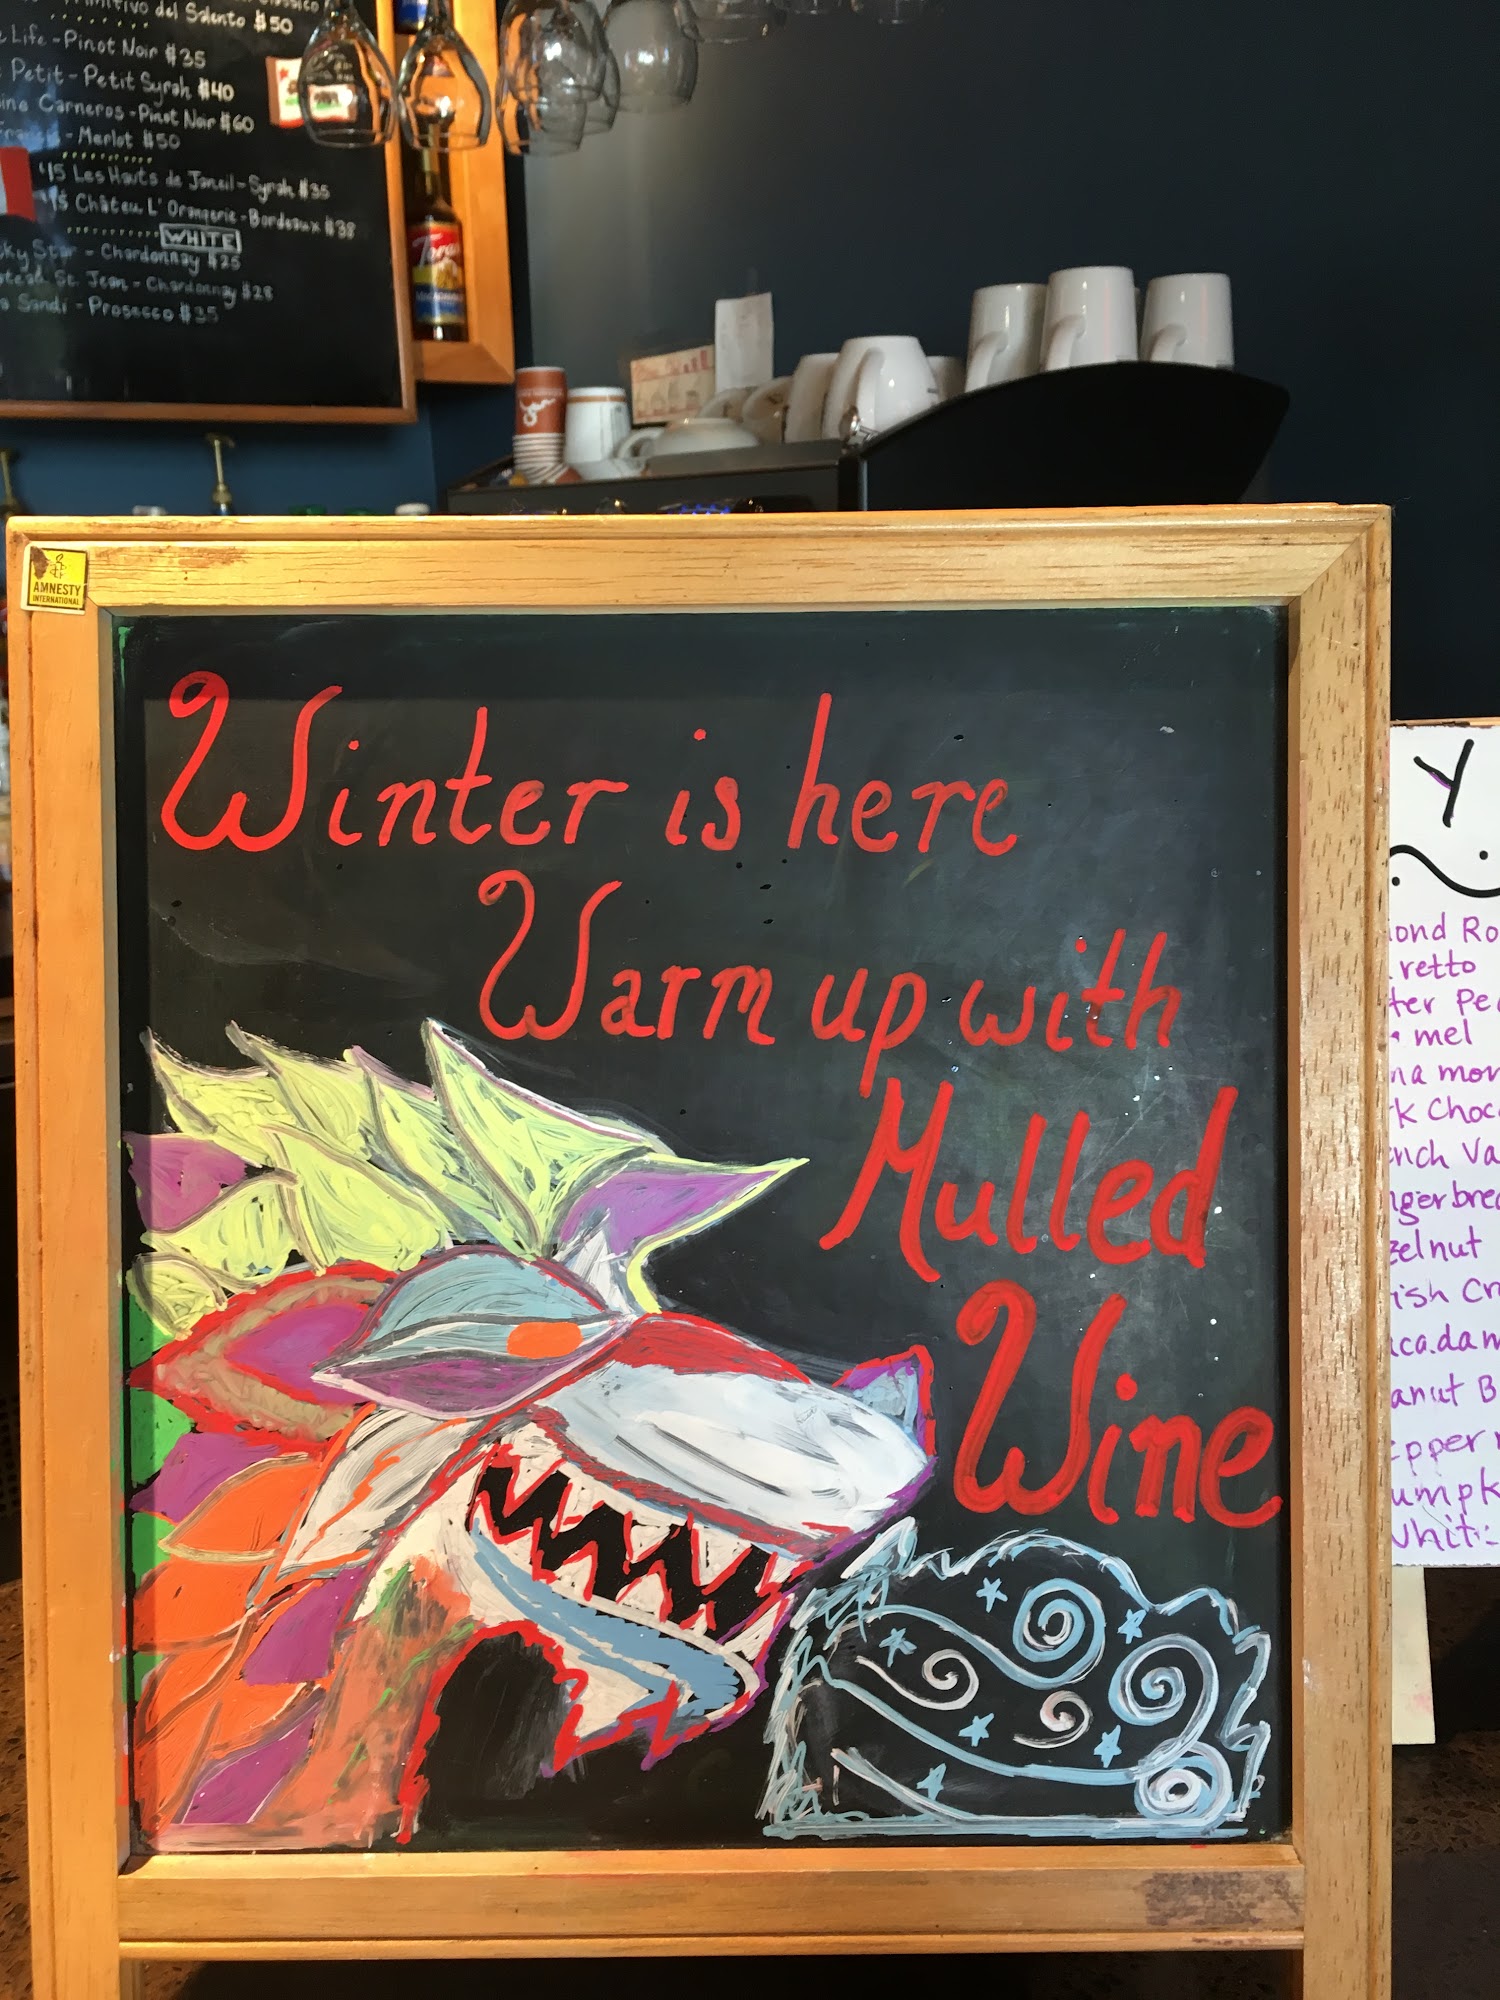 Primitivo del Salento $50
Life - Pinot Noir $35
Petit - Petit Syrah $40
Carneros - Pinot Noir $60
- Merlot $50
'15 Les Hauts de Janeil - Syrah $35
'15 Château L'Orangerie - Bordeaux $38
WHITE
Star - Chardonnay $25
St. Jean - Chardonnay $28
Sandi - Prosecco $35
Torani
AMNESTY
INTERNATIONAL
Winter is here
Warm up with
Mulled
Wine
Y
ond Ro
retto
ter Pe
mel
na mon
rk Choc
ench Va
ngerbrea
zelnut
rish Cr
aca.dam
anut B
epper
umpk
Whit